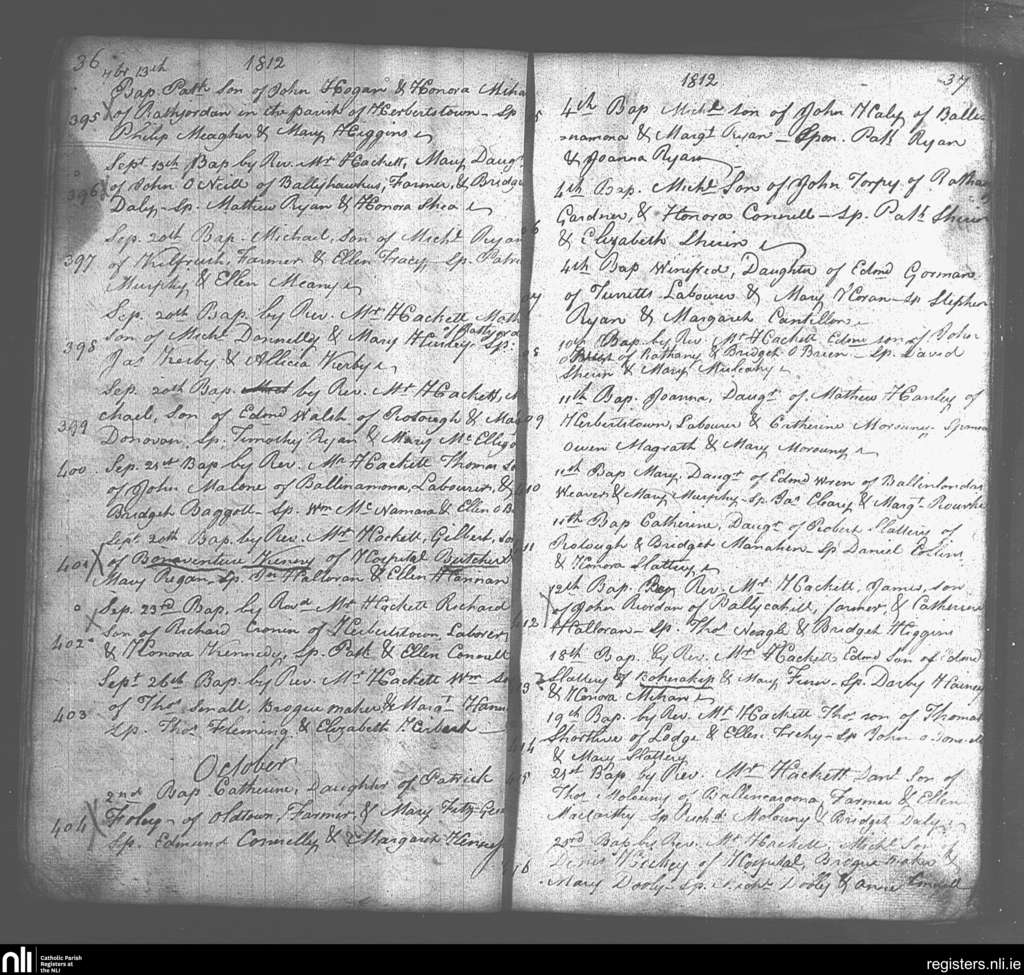 36 7br 13th 1812
Bap Patk Son of John Hogan & Honora Miha
395 of Rathjordan in the parish of Herbertstown - Sp
Philip Meagher & Mary Higgins
Sept 13th Bap by Rev. Mr Hackett, Mary Daugr
396 of John O Neill of Ballyhawkus, Farmer, & Bridge
Daly - Sp. Mathew Ryan & Honora Shea
Sep. 20th Bap. Michael, Son of Michl Ryan
397 of Kilfrush, Farmer & Ellen Tracy - Sp. Patri
Murphy & Ellen Meany
Sep. 20th Bap. by Rev. Mr Hackett Math
of Rathjord
398 Son of Michl Donnelly & Mary Hickey Sp.
Jas Kerby & Allicia Kerby
Sep. 20th Bap. by Rev. Mr Hackett, M
chael, Son of Edmd Walsh of Rotough & Mar
399 Donovan, Sp. Timothy Ryan & Mary Mc Elligo
400 Sep. 21st Bap by Rev. Mr Hackett Thomas So
of John Malone of Ballinamona, Labourer, &
Bridget Baggott - Sp. Wm Mc Namara & Ellen O B
Sept 20th Bap. by Rev. Mr Hackett, Gilbert, So
401 of Bonaventure Kieney of Hospital Butcher
Mary Regan, Sp. Dn Halloran & Ellen Hannan
Sep. 23rd Bap, by Revd Mr Hackett Richard
402 Son of Richard Cronin of Herbertstown, Laborer,
& Honora Kennedy, Sp. Patk & Ellen Connell
Sept 26th Bap. by Rev. Mr Hackett Wm So
403 of Thos Small, Brogue maker & Margt Hann
Sp. Thos Fleming & Elizabeth
October
2nd Bap Catherine, Daughter of Patrick
404 Foley - of Oldtown, Farmer, & Mary Fitz-Ger
Sp. Edmund Connelly & Margaret Henness
1812 37
4th Bap Michl son of John Haly of Balli-
namona & Margt Ryan - Spon. Patk Ryan
& Joanna Ryan
4th Bap. Michl Son of John Torpy of Rathan
Gardner, & Honora Connell - Sp. Patk Sheen
& Elizabeth Sheein
4th Bap Winifred, Daughter of Edmd Gorman
of Turretts Labourer & Mary Sp Stephen
Ryan & Margaret Cantillon
10th Bap. by Rev. Mr Hackett Edmd son of John
of Rathany & Bridget O Brien - Sp. David
Sheein & Mary Mulcahy
11th Bap. Joanna, Daugr of Mathew Hanley of
Herbertstown, Labourer & Catherine Morouny, Sponsors
Owen Magrath & Mary Morouny
11th Bap Mary, Daugr of Edmd Wren of Ballinlondras
Weaver & Mary Murphy - Sp Jas Cleary & Margt Rourke
11th Bap Catherine, Daugr of Robert Slattery of
Rotough & Bridget Manahen - Sp Daniel
& Honora Slattery
12th Bap. By Rev. Mr Hackett, James, son
412 of John Riordan of Ballycahill, farmer, & Catherine
Halloran - Sp. Thos Neagle & Bridget Higgins
18th Bap. by Rev. Mr Hackett Edmd Son of Edmd
Slattery of Boherakep & Mary - Sp. Darby Hainey
& Honora Mihan
19th Bap. by Rev. Mr Hackett Thos son of Thomas
Shortluse of Lodge & Ellen - Sp John
& Mary Slattery
21st Bap by Rev. Mr Hackett Danl Son of
Thos Molouny of Ballincaroona, Farmer & Ellen
Maccarthy Sp Richd Molouny & Bridget Daly
23rd Bap by Rev. Mr Hackett, Michl Son of
Denis Hickey of Hospital, Brogue maker &
Mary Dooly - Sp. Michl Dooly & Anne Connell
nli
Catholic Parish
Registers at
the NLI
registers.nli.ie